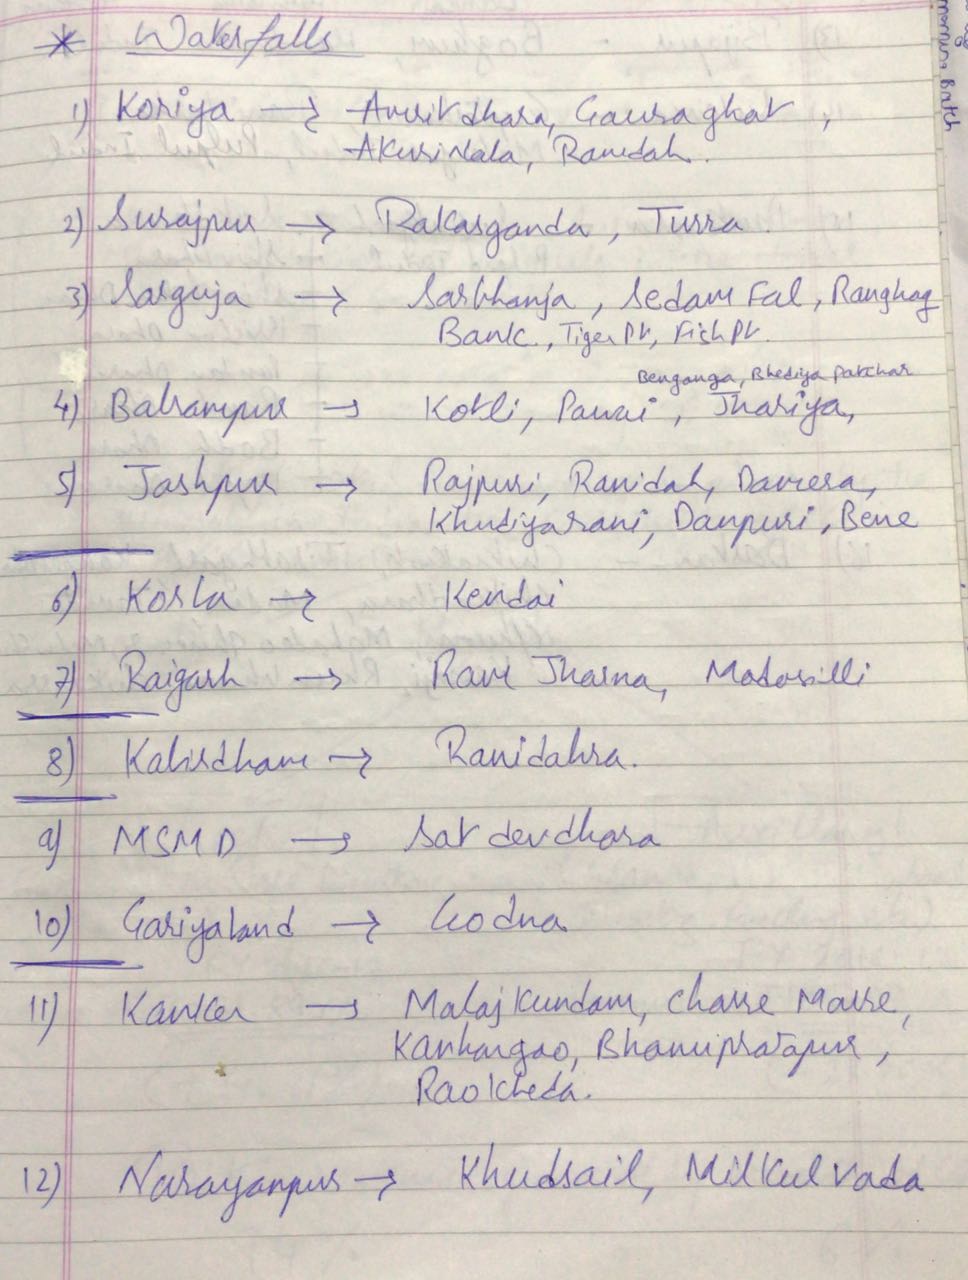 * Waterfalls
1) Koriya → Amrit dhara, Gaura ghat,
Akuri Nala, Ramdah.
2) Surajpur → Rakasganda, Turra
3) Sarguja → Sarbhanja, Sedam Fal, Ranghag
Bank, Tiger Pt, Fish Pt.
Benganga, Bhediya patthar
4) Balrampur → Kotli, Pawai, Jhariya,
5) Jashpur → Rajpuri, Ranidah, Damera,
Khudiyarani, Danpuri, Bene
6) Korba → Kendai
7) Raigarh → Ram Jharna, Madarsilli
8) Kabirdham → Ranidahra.
9) MSMD → Sat devdhara
10) Gariyaband → Godna
11) Kanker → Malaj Kundam, Charre Marre,
Kanhargao, Bhanupratapur,
Raokheda.
12) Narayanpur → Khudsail, Milkulvada
Batch